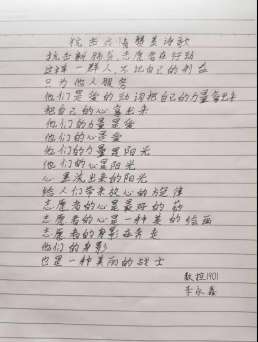 抗击疫情赞美诗歌
抗击新肺炎志愿者在行动
这样一群人,不记自己的利益
只为他人服务
他们是爱的动词把自己的力量拿出来
把自己的心拿出来
他们的力量是爱
他们的心是爱
他们的力量是阳光
他们的心是阳光
心里流出来的阳光
给人们带来放心的旋律
志愿者的心是最好的药
志愿者的心是一种美的绘画
志愿者的身影在奔走
他们的身影
也是一种美丽的战士
数控1901
李永鑫